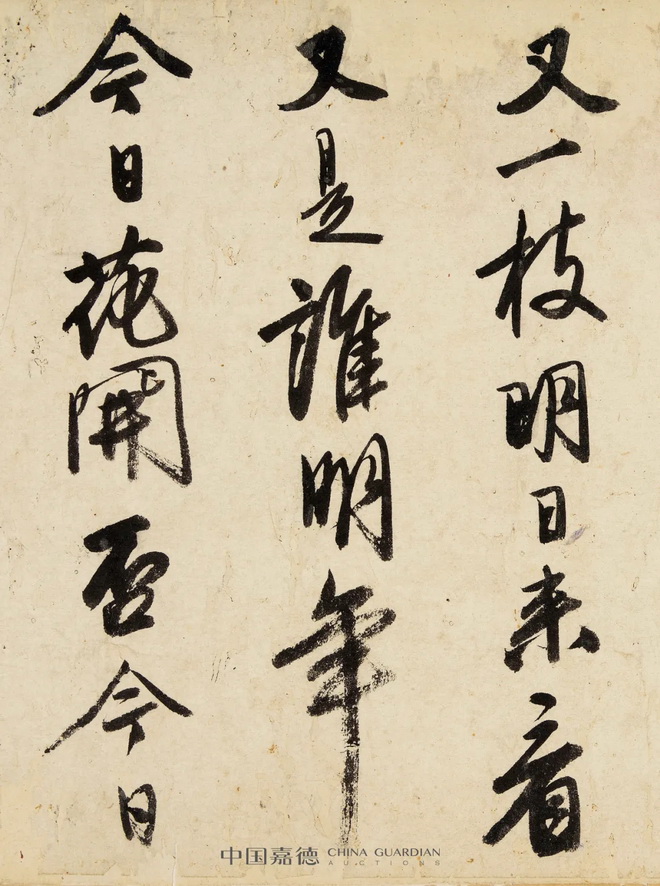 又一枝明日来看
又是誰明年
今日花開盃今日
中国嘉德 CHINA GUARDIAN
AUCTIONS